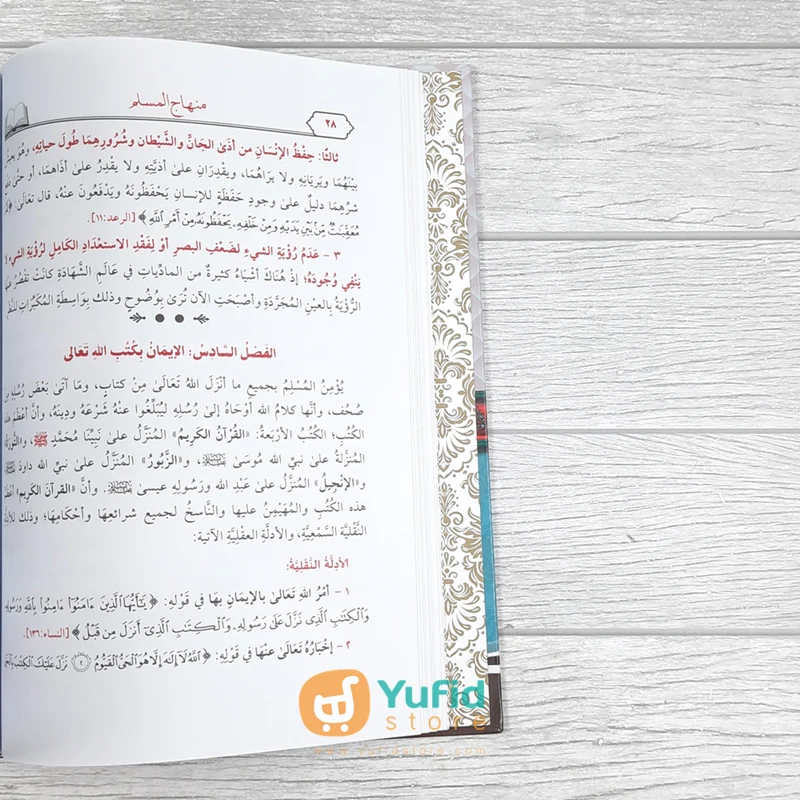 منهاج المسلم
٢٨
ثالثًا: حِفْظُ الإِنْسَانِ من أَذَىٰ الجَانِّ والشَّيْطان وشُرُورِهِمَا طُولَ حياتِهِ، وهُوَ يعيشُ
بينَهُمَا ويَرَيَانِهِ ولا يَرَاهُمَا، ويقدِرَانِ علىٰ أذيَّتِهِ ولا يقْدِرُ علىٰ أذاهُمَا، أو حتَّىٰ دفْعِ
شرِّهِمَا دليلٌ علىٰ وجودِ حَفَظَةٍ للإنسانِ يَحْفَظُونَهُ ويَدْفَعُونَ عنْهُ، قال تعالَىٰ: ﴿لَهُ
مُعَقِّبَٰتٌ مِّنۢ بَيْنِ يَدَيْهِ وَمِنْ خَلْفِهِۦ يَحْفَظُونَهُۥ مِنْ أَمْرِ ٱللَّهِ﴾ [الرعد:١١].
٣ - عَدَمُ رُؤْيَةِ الشيءِ لضَعْفِ البصرِ أوْ لِفَقْدِ الاستعْدَادِ الكَامِلِ لرُؤْيَةِ الشيءِ لا
يَنْفِي وُجُودَهُ؛ إذْ هُنَاكَ أشْيَاءُ كثيرةٌ من المادِّيَاتِ في عَالَمِ الشَّهَادَةِ كانَتْ تَقْصُرُ عن
الرُّؤْيَةِ بالعيْنِ المجرَّدَةِ وأصْبَحَتِ الآن تُرَىٰ بوُضُوحٍ وذلك بِوَاسِطَةِ المُكَبِّرَاتِ للنَّظَرِ
الفَصْلُ السَّادِسُ: الإيمَانُ بِكُتُبِ اللهِ تَعَالَى
يُؤْمِنُ المُسْلِمُ بجميعِ ما أنْزَلَ اللهُ تَعَالَىٰ مِنْ كتابٍ، ومَا آتىٰ بَعْضَ رُسُلِهِ مِنْ
صُحُف، وأنَّها كلامُ الله أوْحَاهُ إلىٰ رُسُلِهِ ليُبَلِّغُوا عنْهُ شَرْعَهُ ودِينَهُ، وأنَّ أعْظَمَ هذه
الكُتُبِ؛ الكُتُبُ الأرْبعَةُ: «القُرْآنُ الكَرِيمُ» المُنَزَّلُ علىٰ نبيِّنَا مُحَمَّدٍ ﷺ، و«التَّوْرَاةُ»
المُنَزَّلةُ علىٰ نبيِّ الله مُوسَىٰ، و«الزَّبُورُ» المُنَزَّلُ علىٰ نبيِّ الله داودَ
و«الإنْجِيلُ» المُنَزَّلُ علىٰ عَبْدِ الله ورَسُولِهِ عيسىٰ. وأنَّ «القرآنَ الكَريمَ» أعْظَمُ
هذه الكُتُبِ والمُهَيْمِنُ عليها والنَّاسخُ لجميعِ شرائِعِهَا وأحْكَامِهَا؛ وذلك للأدِلَّةِ
النَّقْليَّةِ السَّمْعِيَّةِ، والأدلَّةِ العقْلِيَّةِ الآتية:
الأدِلَّةُ النَّقْلِيَّةُ:
١ - أمْرُ اللهِ تَعَالَىٰ بالإيمَانِ بهَا في قَوْلِهِ: ﴿يَٰٓأَيُّهَا ٱلَّذِينَ ءَامَنُوٓا۟ ءَامِنُوا۟ بِٱللَّهِ وَرَسُولِهِۦ
وَٱلْكِتَٰبِ ٱلَّذِى نَزَّلَ عَلَىٰ رَسُولِهِۦ وَٱلْكِتَٰبِ ٱلَّذِىٓ أَنزَلَ مِن قَبْلُ﴾ [النساء:١٣٦].
٢ - إخْبَارُهُ تَعَالَىٰ عنْهَا في قوْلِهِ: ﴿ٱللَّهُ لَآ إِلَٰهَ إِلَّا هُوَ ٱلْحَىُّ ٱلْقَيُّومُ ٢ نَزَّلَ عَلَيْكَ ٱلْكِتَٰبَ بِٱلْحَقِّ
Yufid
store
www.yufidstore.com